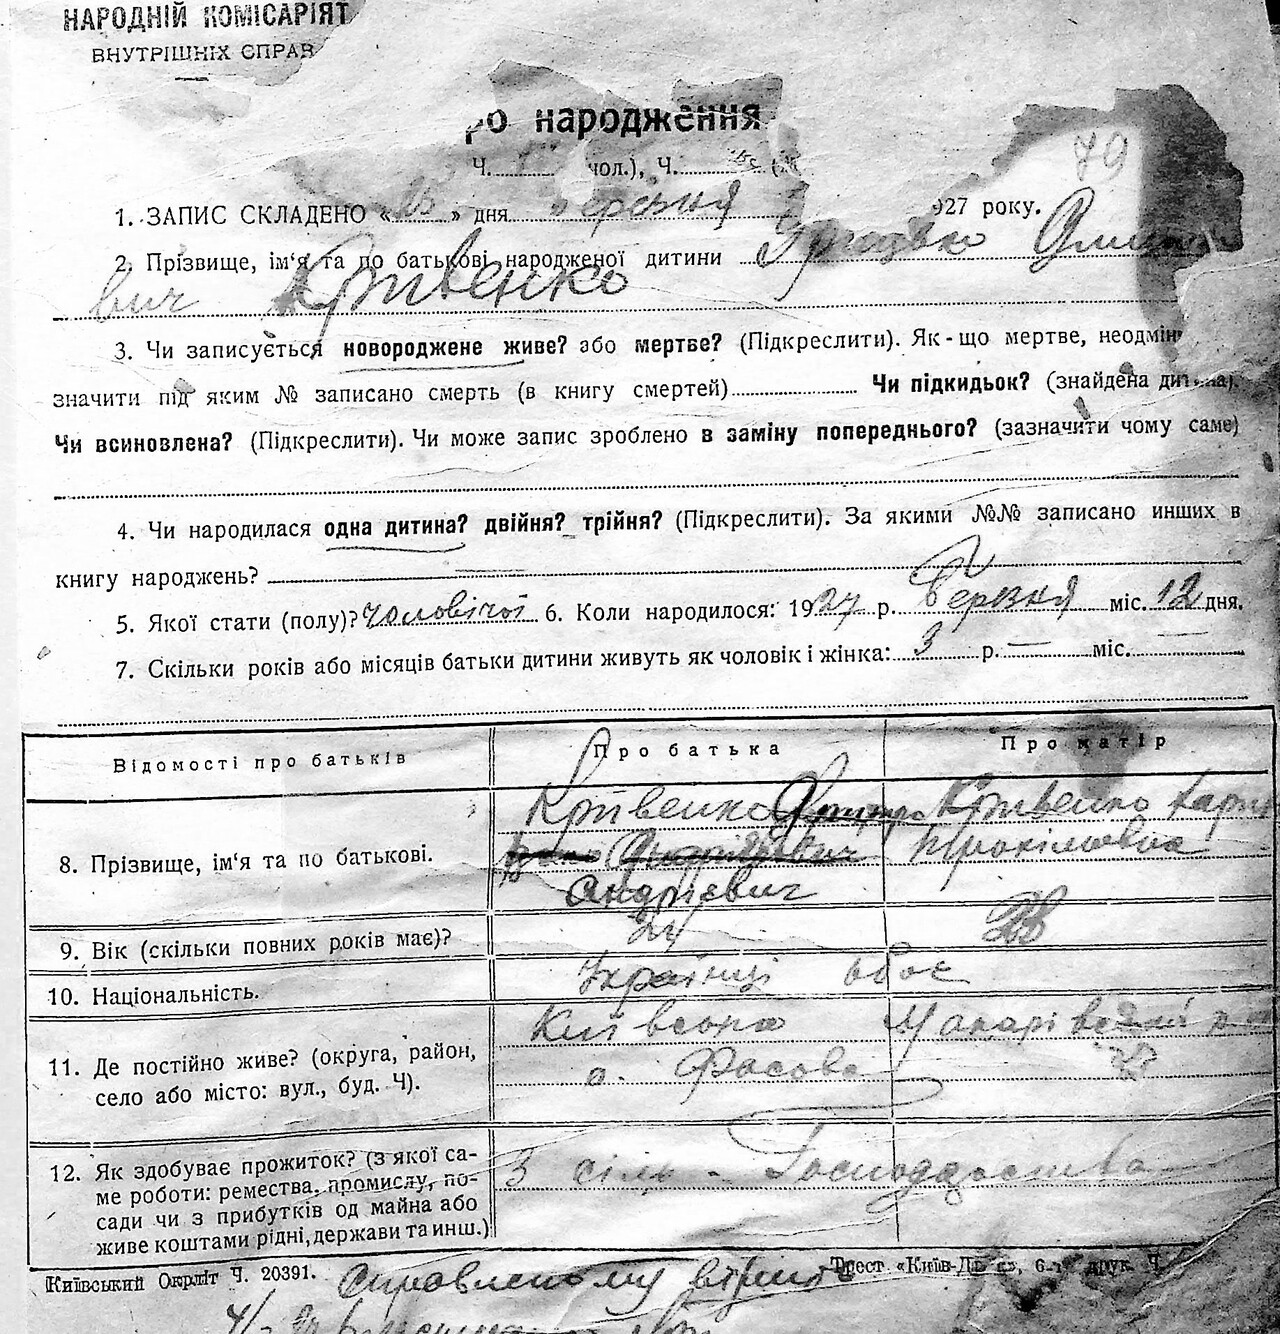 НАРОДНІЙ КОМІСАРІЯТ
ВНУТРІШНІХ СПРАВ
ро народження
79
Ч. чол.), Ч.
1. ЗАПИС СКЛАДЕНО « » дня Березня 927 року.
2. Прізвище, ім'я та по батькові народженої дитини
вич Крівенко
3. Чи записується новороджене живе? або мертве? (Підкреслити). Як-що мертве, неодмін
значити під яким № записано смерть (в книгу смертей) Чи підкидьок? (знайдена дитина).
Чи всиновлена? (Підкреслити). Чи може запис зроблено в заміну попереднього? (зазначити чому саме)
4. Чи народилася одна дитина? двійня? трійня? (Підкреслити). За якими №№ записано инших в
книгу народжень?
5. Якої стати (полу)? Чоловічої 6. Коли народилося: 1927 р. Березня міс. 12 дня.
7. Скільки років або місяців батьки дитини живуть як чоловік і жінка: 3 р. — міс. —
Відомості про батьків Про батька Про матір
8. Прізвище, ім'я та по батькові.
Крівенко Крівенко
Андрієвич
9. Вік (скільки повних років має)? 24
10. Національність. Українці обоє
11. Де постійно живе? (округа, район,
село або місто: вул., буд. Ч).
Київська Макарівський
с. Фасова
12. Як здобуває прожиток? (з якої са-
ме роботи: ремества, промислу, по-
сади чи з прибутків од майна або
живе коштами рідні, держави та инш.)
З сіль-Господарства
Київський Окрліт Ч. 20391. Трест «Київ-Друк», 6-та друк. Ч.
Справленому вірить